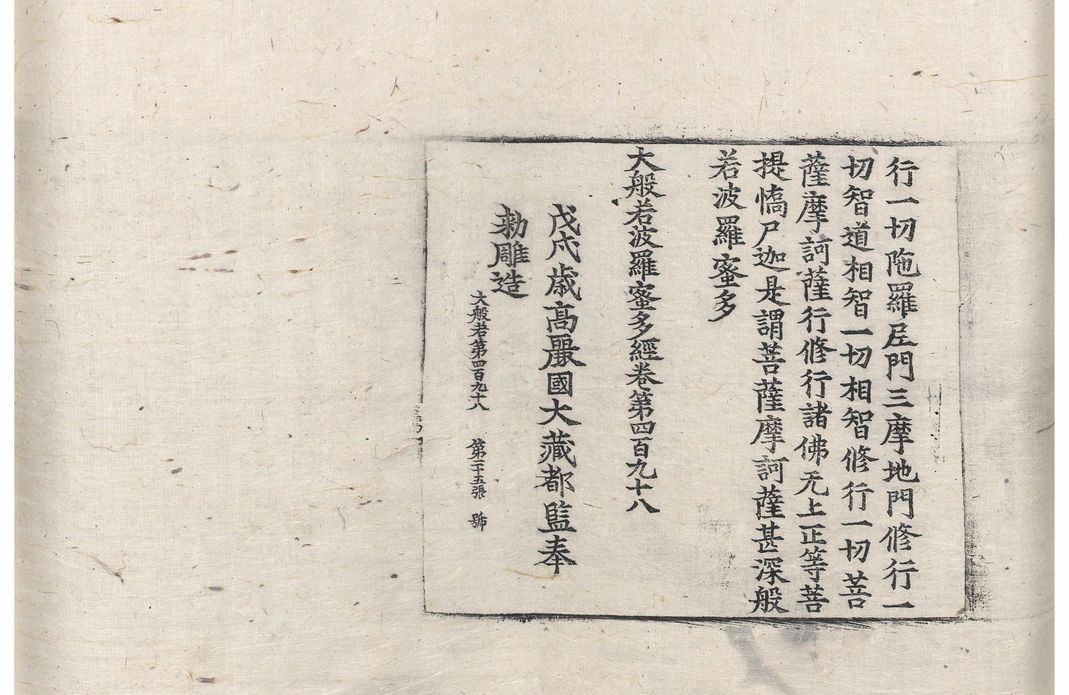 行一切陁羅尼門三摩地門修行一
切智道相智一切相智修行一切菩
薩摩訶薩行修行諸佛无上正等菩
提憍尸迦是謂菩薩摩訶薩甚深般
若波羅蜜多
大般若波羅蜜多經卷第四百九十八
戊戌歲高麗國大藏都監奉
勅雕造
大般若第四百九十八 第二十五張 號